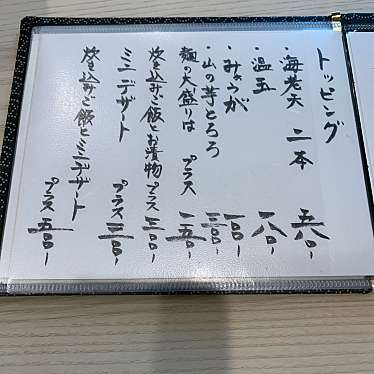 トッピング
・海老天 二本 五八〇-
・温玉 一八〇-
・みょうが 一〇〇-
・山の芋とろろ 三〇〇-
麺の大盛りは プラス 一五〇-
炊き込みご飯とお漬物 プラス 三〇〇-
ミニデザート プラス 三〇〇-
炊き込みご飯とミニデザート プラス 五〇〇-